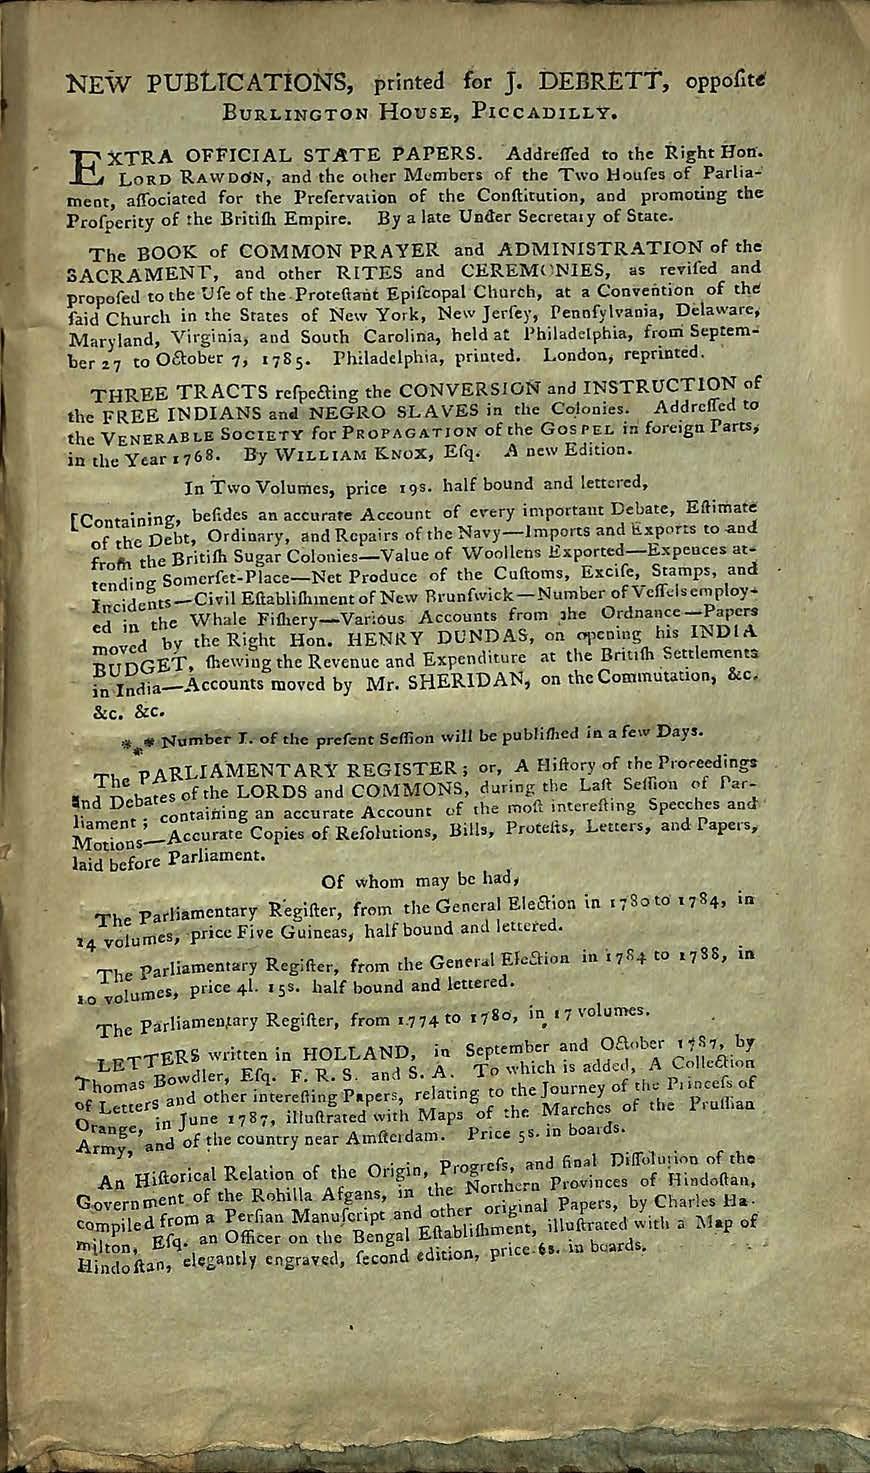 NEW PUBLICATIONS, printed for J. DEBRETT, oppoſite
BURLINGTON HOUSE, PICCADILLY.
EXTRA OFFICIAL STATE PAPERS. Addreſſed to the Right Hon.
LORD RAWDON, and the other Members of the Two Houſes of Parlia-
ment, aſſociated for the Preſervation of the Conſtitution, and promoting the
Proſperity of the Britiſh Empire. By a late Under Secretary of State.
The BOOK of COMMON PRAYER and ADMINISTRATION of the
SACRAMENT, and other RITES and CEREMONIES, as reviſed and
propoſed to the Uſe of the Proteſtant Epiſcopal Church, at a Convention of the
ſaid Church in the States of New York, New Jerſey, Pennſylvania, Delaware,
Maryland, Virginia, and South Carolina, held at Philadelphia, from Septem-
ber 27 to October 7, 1785. Philadelphia, printed. London, reprinted.
THREE TRACTS reſpecting the CONVERSION and INSTRUCTION of
the FREE INDIANS and NEGRO SLAVES in the Colonies. Addreſſed to
the VENERABLE SOCIETY for PROPAGATION of the GOSPEL in foreign Parts,
in the Year 1768. By WILLIAM KNOX, Eſq. A new Edition.
In Two Volumes, price 19s. half bound and lettered,
[Containing, beſides an accurate Account of every important Debate, Eſtimate
of the Debt, Ordinary, and Repairs of the Navy—Imports and Exports to and
from the Britiſh Sugar Colonies—Value of Woollens Exported—Expences at-
tending Somerſet-Place—Net Produce of the Cuſtoms, Exciſe, Stamps, and
Incidents—Civil Eſtabliſhment of New Brunſwick—Number of Veſſels employ-
ed in the Whale Fiſhery—Various Accounts from the Ordnance—Papers
moved by the Right Hon. HENRY DUNDAS, on opening his INDIA
BUDGET, ſhewing the Revenue and Expenditure at the Britiſh Settlements
in India—Accounts moved by Mr. SHERIDAN, on the Commutation, &c.
&c. &c.
*** Number I. of the preſent Seſſion will be publiſhed in a few Days.
The PARLIAMENTARY REGISTER; or, A Hiſtory of the Proceedings
and Debates of the LORDS and COMMONS, during the Laſt Seſſion of Par-
liament; containing an accurate Account of the moſt intereſting Speeches and
Motions—Accurate Copies of Reſolutions, Bills, Proteſts, Letters, and Papers,
laid before Parliament.
Of whom may be had,
The Parliamentary Regiſter, from the General Election in 1780 to 1784, in
14 volumes, price Five Guineas, half bound and lettered.
The Parliamentary Regiſter, from the General Election in 1784 to 1788, in
10 volumes, price 4l. 15s. half bound and lettered.
The Parliamentary Regiſter, from 1774 to 1780, in 17 volumes.
LETTERS written in HOLLAND, in September and October 1787, by
Thomas Bowdler, Eſq. F. R. S. and S. A. To which is added, A Collection
of Letters and other intereſting Papers, relating to the Journey of the Princeſs of
Orange, in June 1787, illuſtrated with Maps of the Marches of the Pruſſian
Army, and of the country near Amſterdam. Price 5s. in boards.
An Hiſtorical Relation of the Origin, Progreſs, and final Diſſolution of the
Government of the Rohilla Afgans, in the Northern Provinces of Hindoſtan,
compiled from a Perſian Manuſcript and other original Papers, by Charles Ha-
milton, Eſq. an Officer on the Bengal Eſtabliſhment, illuſtrated with a Map of
Hindoſtan, elegantly engraved, ſecond edition, price 6s. in boards.